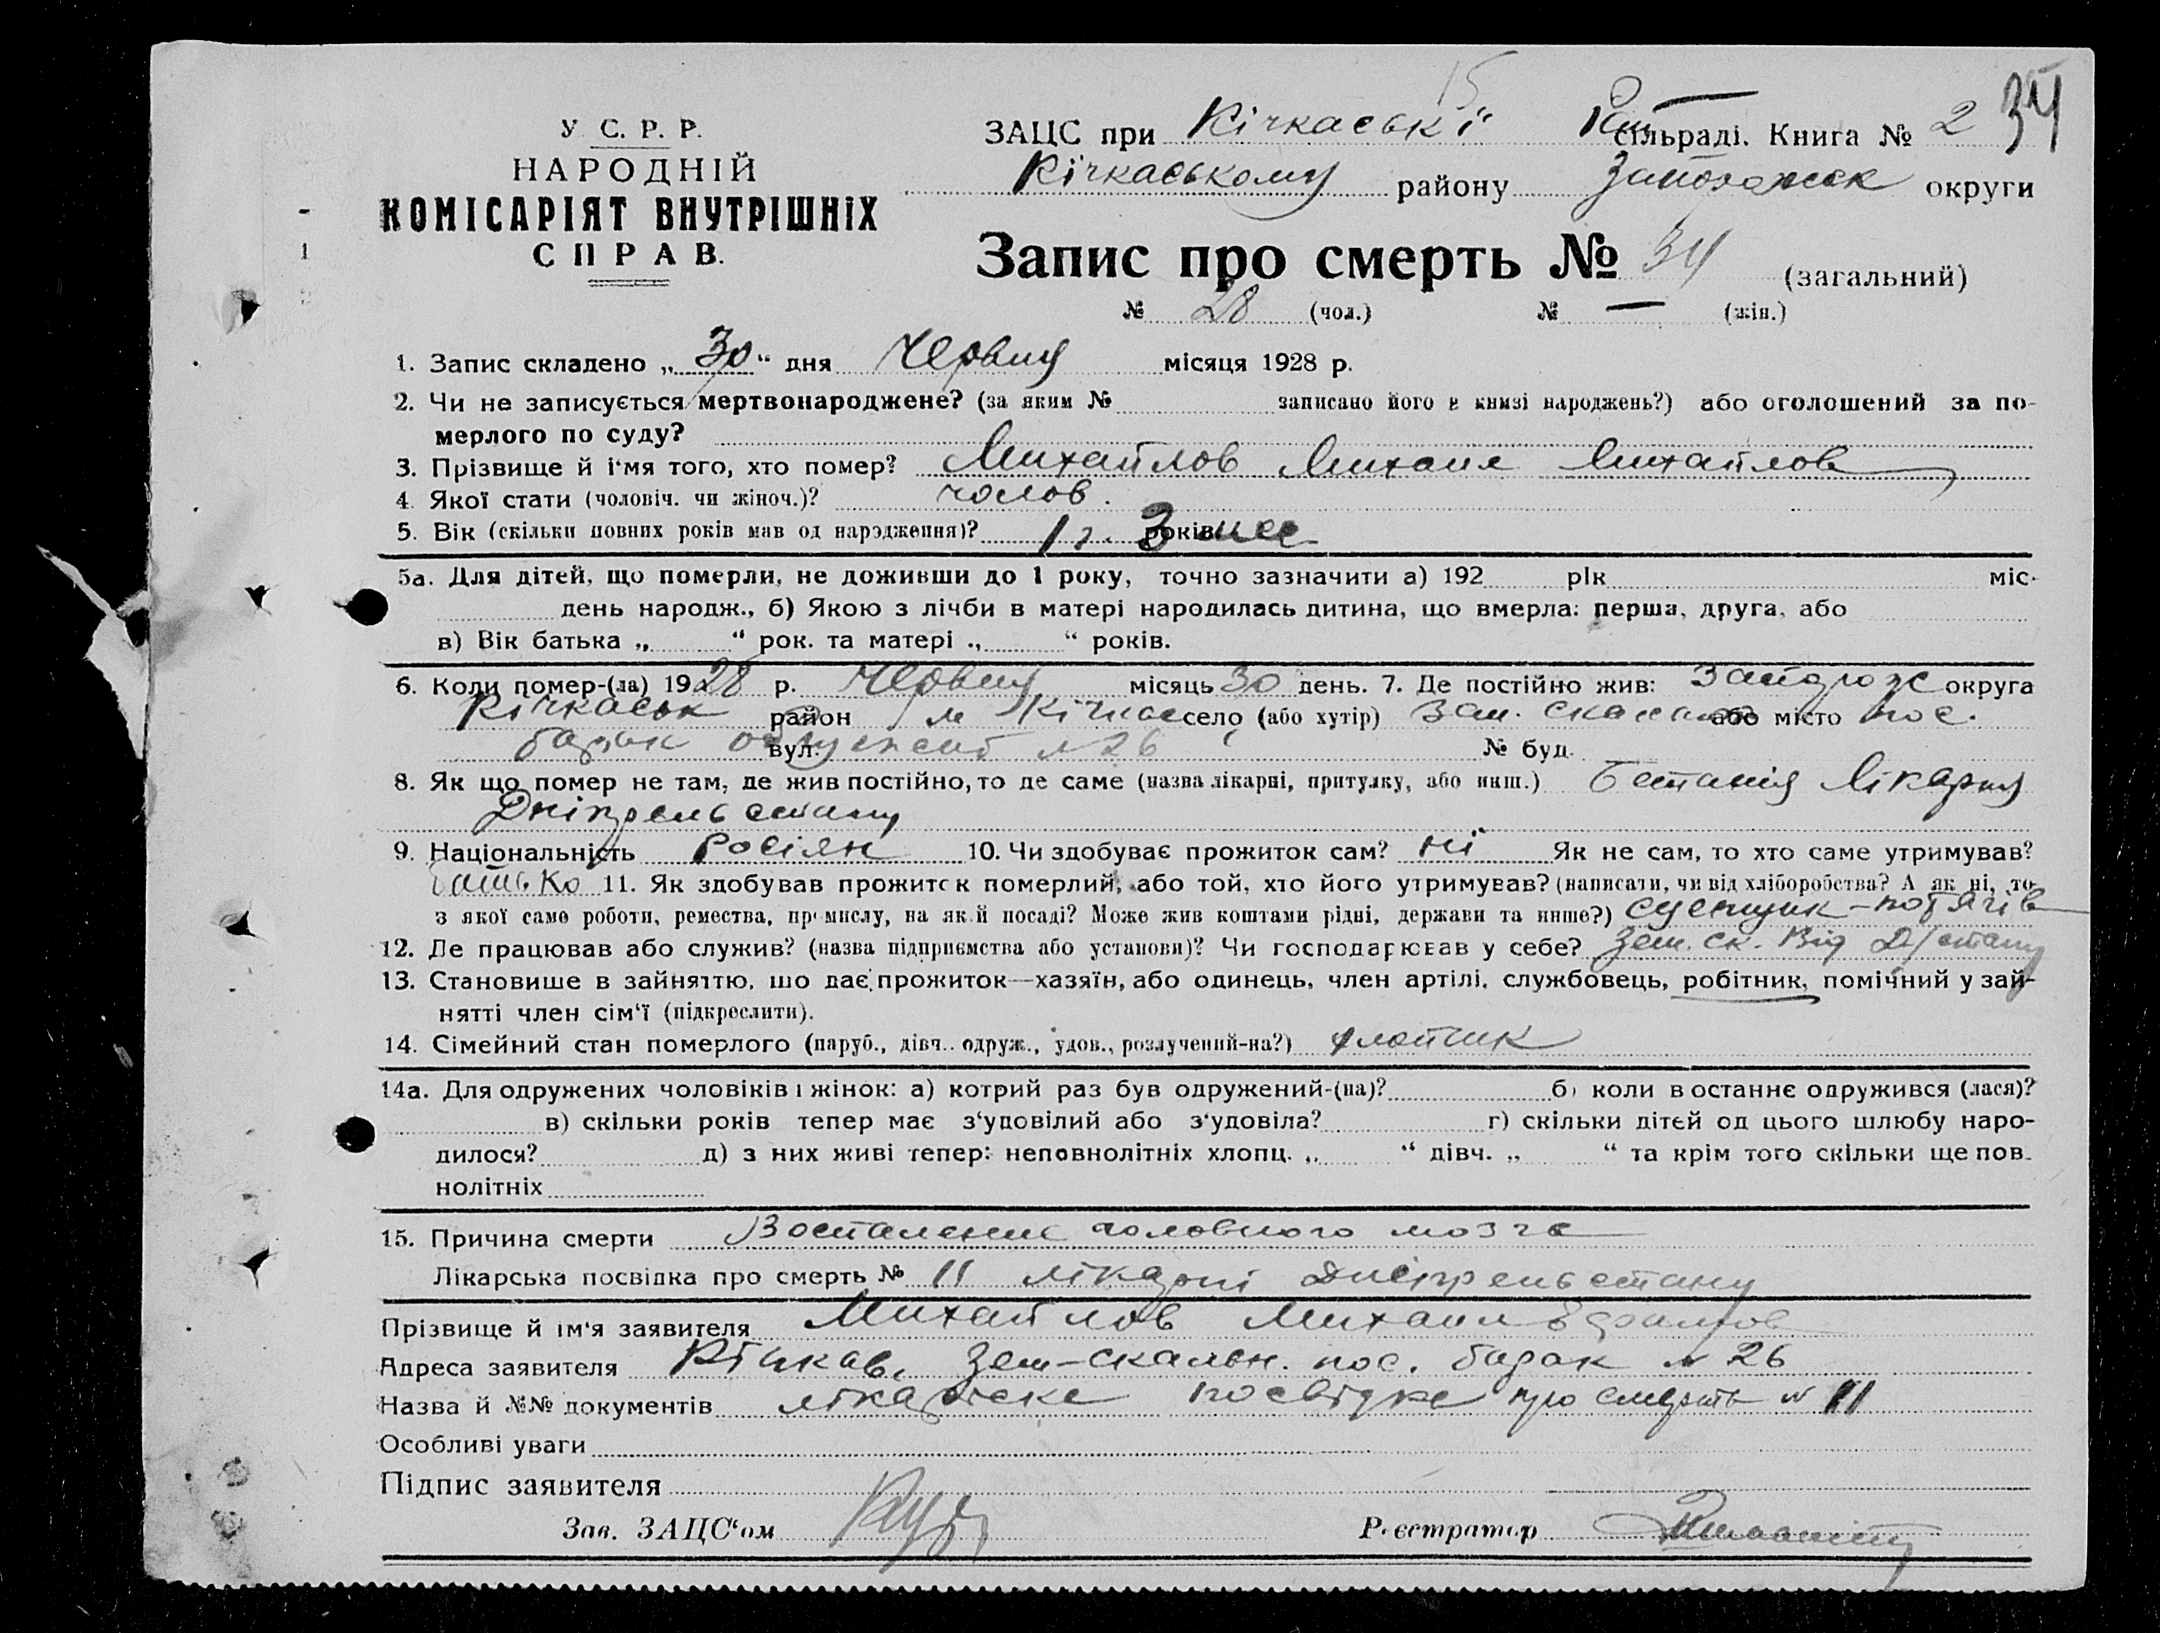 34
У. С. Р. Р.
НАРОДНІЙ
КОМІСАРІЯТ ВНУТРІШНІХ
СПРАВ.
ЗАЦС при Кічкаські Рай сільраді. Книга № 2
Кічкаському району Запоріжск округи
Запис про смерть № 34 (загальний)
№ 28 (чол.) № — (жін.)
1. Запис складено „30“ дня Червня місяця 1928 р.
2. Чи не записується мертвонароджене? (за яким № записано його в книзі народжень?) або оголошений за по-
мерлого по суду?
3. Прізвище й і'мя того, хто помер? Михайлов Михаил Михайлов
4. Якої стати (чоловіч. чи жіноч.)? чолов.
5. Вік (скільки повних років мав од народження)? 1 г. 3 років мес
5а. Для дітей, що померли, не доживши до 1 року, точно зазначити а) 192 рік міс.
день народж., б) Якою з лічби в матері народилась дитина, що вмерла: перша, друга, або
в) Вік батька „ “ рок. та матері „ “ років.
6. Коли помер-(ла) 1928 р. Червня місяць 30 день. 7. Де постійно жив: Запоріж округа
Кічкаськ район м Кічкас село (або хутір) або місто пос.
барак № 26 вул. № буд.
8. Як що помер не там, де жив постійно, то де саме (назва лікарні, притулку, або инш.) Лікарня
Дніпрельстану
9. Національність Росіян 10. Чи здобуває прожиток сам? ні Як не сам, то хто саме утримував?
батько 11. Як здобував прожиток померлий, або той, хто його утримував? (написати, чи від хліборобства? А як ні, то
з якої саме роботи, ремества, промислу, на якій посаді? Може жив коштами рідні, держави та инше?) сцепщик-потягів
12. Де працював або служив? (назва підприємства або установи)? Чи господарював у себе? Зем. ск. Від Д/стану
13. Становище в зайняттю, що дає прожиток—хазяїн, або одинець, член артілі, службовець, робітник, помічний у зай-
нятті член сім'ї (підкреслити).
14. Сімейний стан померлого (паруб., дівч., одруж., удов., розлучений-на?) хлопчик
14а. Для одружених чоловіків і жінок: а) котрий раз був одружений-(на)? б) коли в останнє одружився (лася)?
в) скільки років тепер має з'удовілий або з'удовіла? г) скільки дітей од цього шлюбу наро-
дилося? д) з них живі тепер: неповнолітніх хлопц. „ “ дівч. „ “ та крім того скільки ще пов-
нолітніх
15. Причина смерти Воспаление головного мозга
Лікарська посвідка про смерть № 11 лікарні Дніпрельстану
Прізвище й ім'я заявителя Михайлов Михаил Ефимов
Адреса заявителя Кічкас, Зем-скальн. пос. барак № 26
Назва й №№ документів лікарске посвідке про смерть № 11
Особливі уваги
Підпис заявителя
Зав. ЗАЦС'ом
Реєстратор